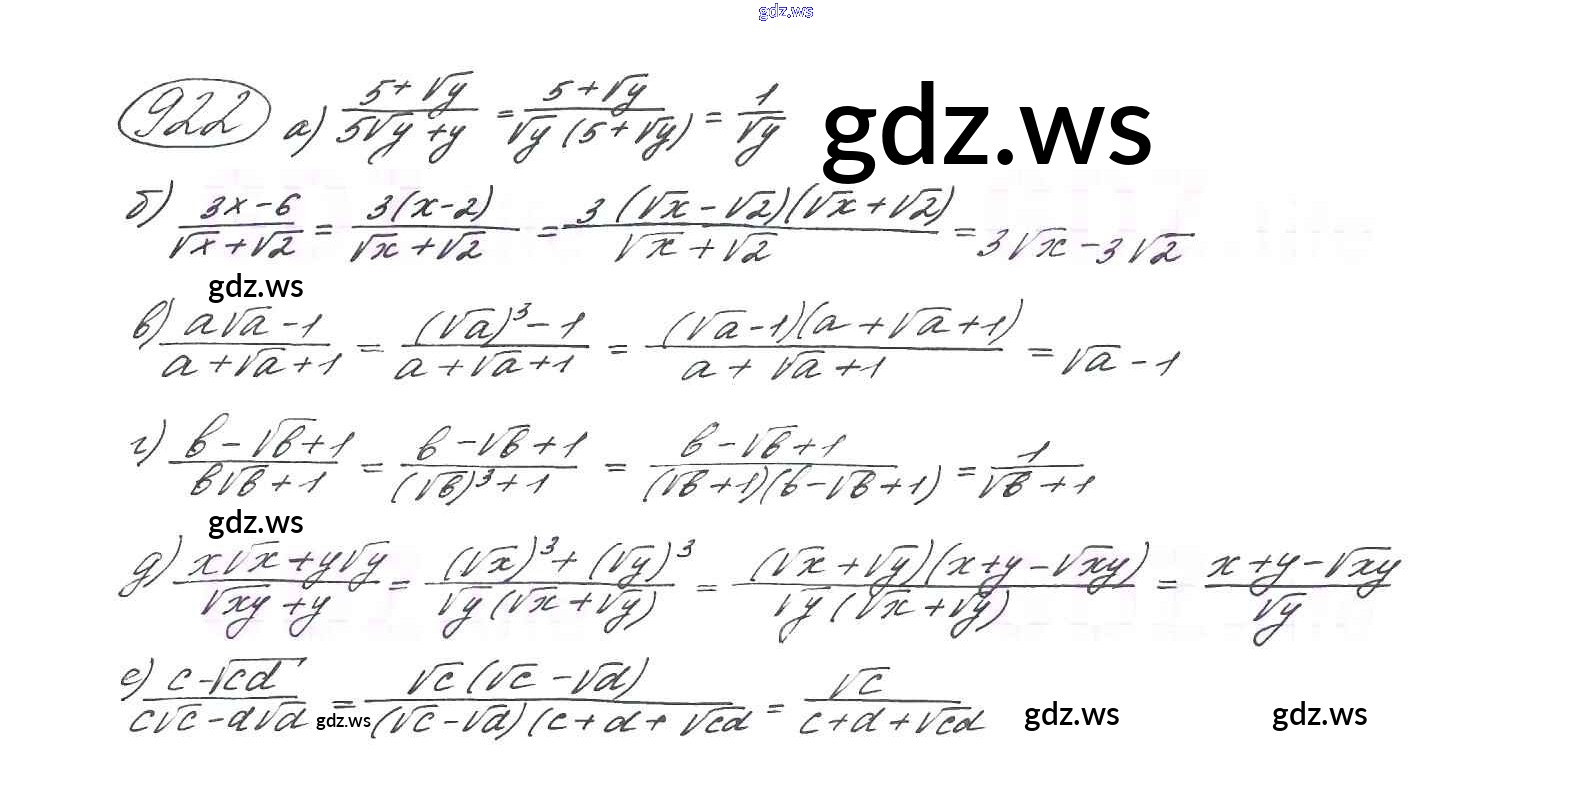 gdz.ws
922 а) (5+√y)/(5√y+y) = (5+√y)/(√y(5+√y)) = 1/√y gdz.ws
б) (3x-6)/(√x+√2) = 3(x-2)/(√x+√2) = 3(√x-√2)(√x+√2)/(√x+√2) = 3√x-3√2
gdz.ws
в) (a√a-1)/(a+√a+1) = ((√a)³-1)/(a+√a+1) = (√a-1)(a+√a+1)/(a+√a+1) = √a-1
г) (b-√b+1)/(b√b+1) = (b-√b+1)/((√b)³+1) = (b-√b+1)/((√b+1)(b-√b+1)) = 1/(√b+1)
gdz.ws
д) (x√x+y√y)/(√xy+y) = ((√x)³+(√y)³)/(√y(√x+√y)) = (√x+√y)(x+y-√xy)/(√y(√x+√y)) = (x+y-√xy)/√y
е) (c-√cd)/(c√c-d√d) = √c(√c-√d)/((√c-√d)(c+d+√cd) = √c/(c+d+√cd)
gdz.ws gdz.ws gdz.ws